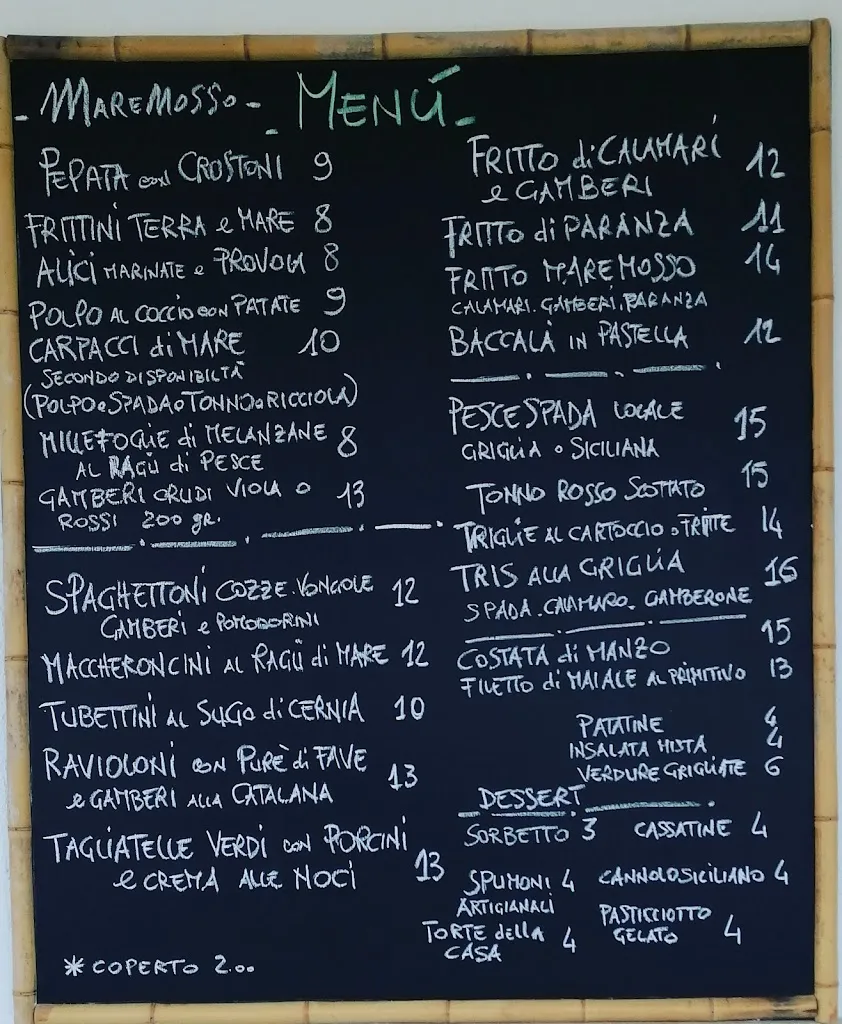 - MAREMOSSO - - MENÚ -
PEPATA con CROSTONI 9
FRITTINI TERRA e MARE 8
ALICI MARINATE e PROVOLA 8
POLPO AL COCCIO con PATATE 9
CARPACCI di MARE 10
SECONDO DISPONIBILTÀ
(POLPO o SPADA o TONNO o RICCIOLA)
MILLEFOGLIE di MELANZANE 8
AL RAGÙ di PESCE
GAMBERI CRUDI VIOLA O 13
ROSSI 200 gr.
SPAGHETTONI COZZE. VONGOLE 12
GAMBERI e POMODORINI
MACCHERONCINI AL RAGÙ di MARE 12
TUBETTINI AL SUGO di CERNIA 10
RAVIOLONI con PURÈ di FAVE
e GAMBERI ALLA CATALANA 13
TAGLIATELLE VERDI con PORCINI
e CREMA ALLE NOCI 13
* COPERTO 2.00
FRITTO di CALAMARI 12
e GAMBERI
FRITTO di PARANZA 11
FRITTO MAREMOSSO 14
CALAMARI. GAMBERI. PARANZA
BACCALÀ IN PASTELLA 12
PESCE SPADA LOCALE 15
GRIGLIA o SICILIANA
TONNO ROSSO SCOTTATO 15
TRIGLIE AL CARTOCCIO o FRITTE 14
TRIS ALLA GRIGLIA 16
SPADA. CALAMARO. GAMBERONE
COSTATA di MANZO 15
FILETTO di MAIALE AL PRIMITIVO 13
PATATINE 4
INSALATA MISTA 4
VERDURE GRIGLIATE 6
DESSERT
SORBETTO 3 CASSATINE 4
SPUMONI 4 CANNOLO SICILIANO 4
ARTIGIANALI
TORTE della 4
CASA
PASTICCIOTTO
GELATO 4